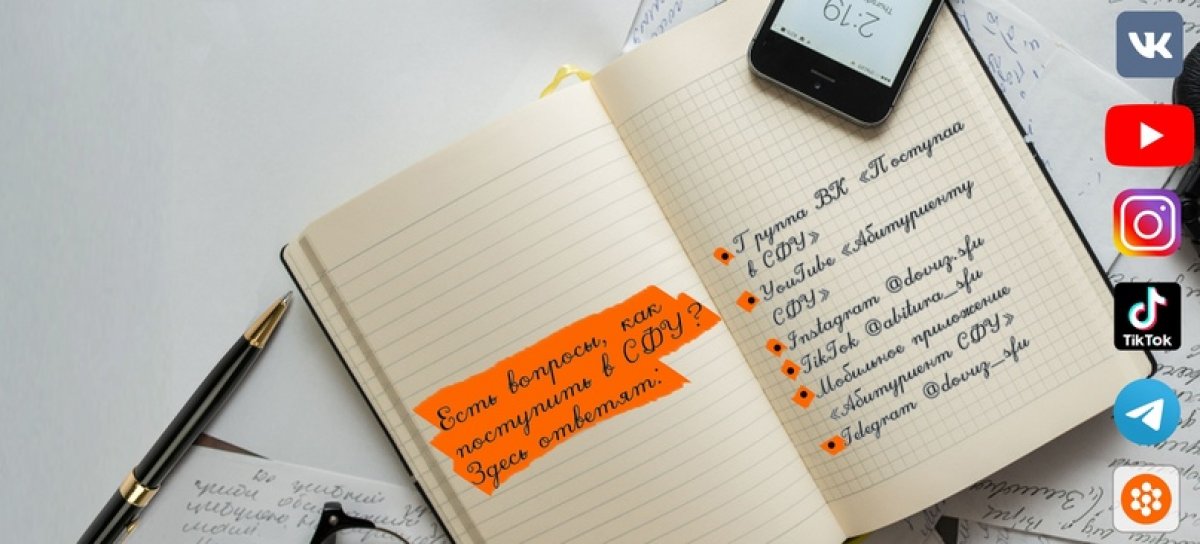 Есть вопросы, как
поступить в СФУ?
Здесь ответят:
Группа ВК «Поступай
в СФУ»
YouTube «Абитуриенту
СФУ»
Instagram @dovuz.sfu
TikTok @abitura_sfu
Мобильное приложение
«Абитуриент СФУ»
Telegram @dovuz_sfu
2:19
TikTok